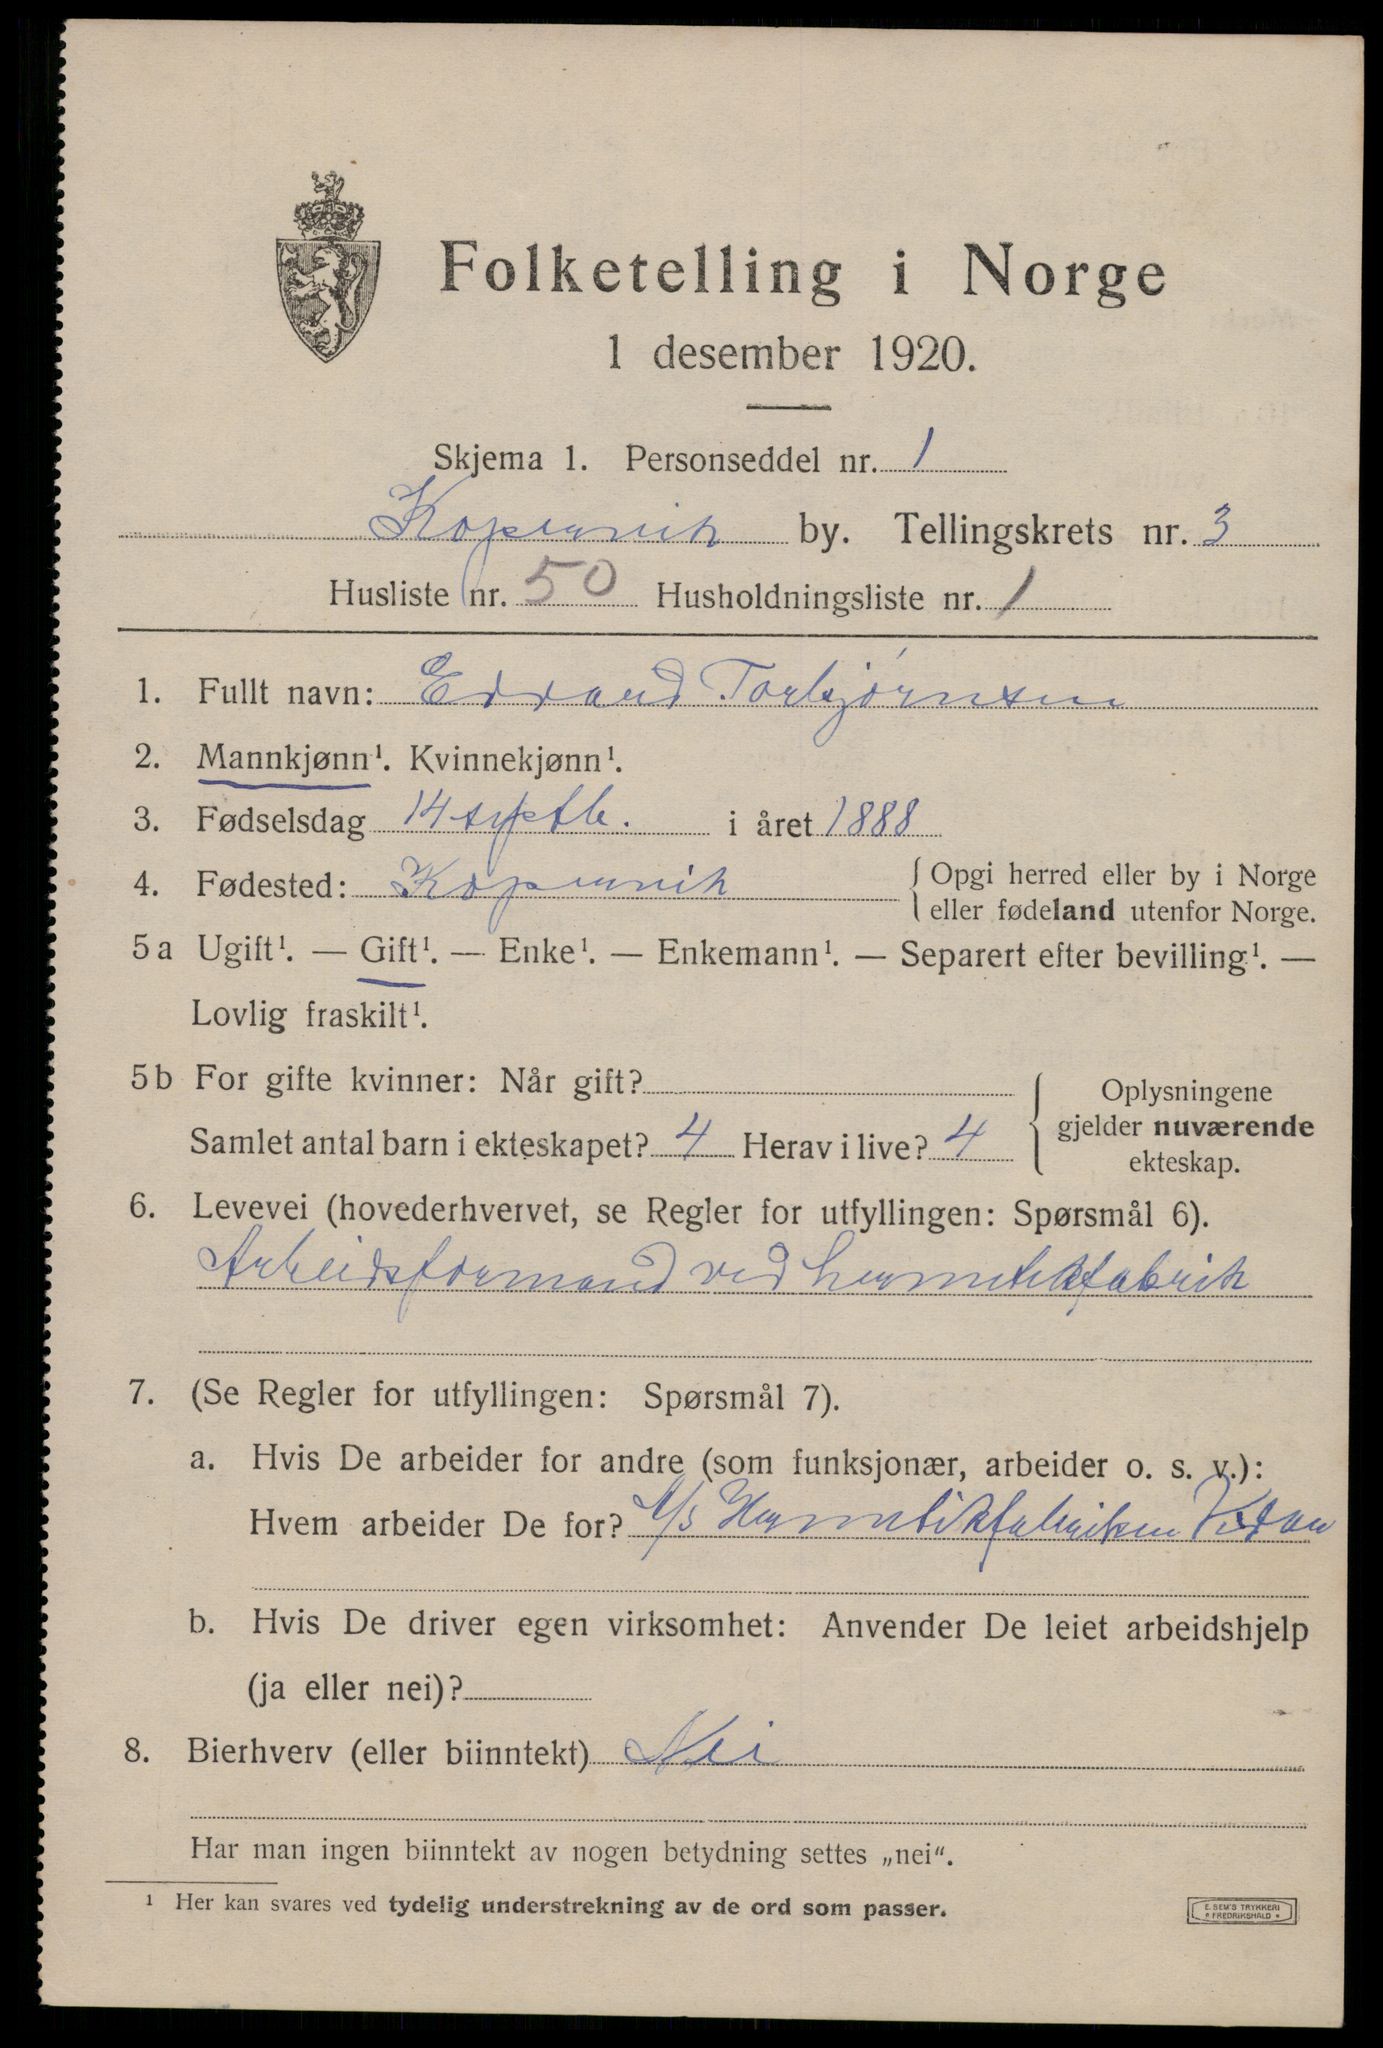 Folketelling i Norge
1 desember 1920.
Skjema 1. Personseddel nr. 1
Kopervik by. Tellingskrets nr. 3
Husliste nr. 50 Husholdningsliste nr. 1
1. Fullt navn: Edvard Torbjørnsen
2. Mannkjønn¹. Kvinnekjønn¹.
3. Fødselsdag 14 septb. i året 1888
4. Fødested: Kopervik { Opgi herred eller by i Norge
eller fødeland utenfor Norge.
5a Ugift¹. — Gift¹. — Enke¹. — Enkemann¹. — Separert efter bevilling¹. —
Lovlig fraskilt¹.
5b For gifte kvinner: Når gift?
Samlet antal barn i ekteskapet? 4 Herav i live? 4
{ Oplysningene
gjelder nuværende
ekteskap.
6. Levevei (hovederhvervet, se Regler for utfyllingen: Spørsmål 6).
Arbeidsformand ved hermetikfabrik
7. (Se Regler for utfyllingen: Spørsmål 7).
a. Hvis De arbeider for andre (som funksjonær, arbeider o. s. v.):
Hvem arbeider De for? A/S Hermetikfabriken
b. Hvis De driver egen virksomhet: Anvender De leiet arbeidshjelp
(ja eller nei)?
8. Bierhverv (eller biinntekt) Nei
Har man ingen biinntekt av nogen betydning settes „nei“.
¹ Her kan svares ved tydelig understrekning av de ord som passer.
E. SEM'S TRYKKERI
FREDRIKSHALD